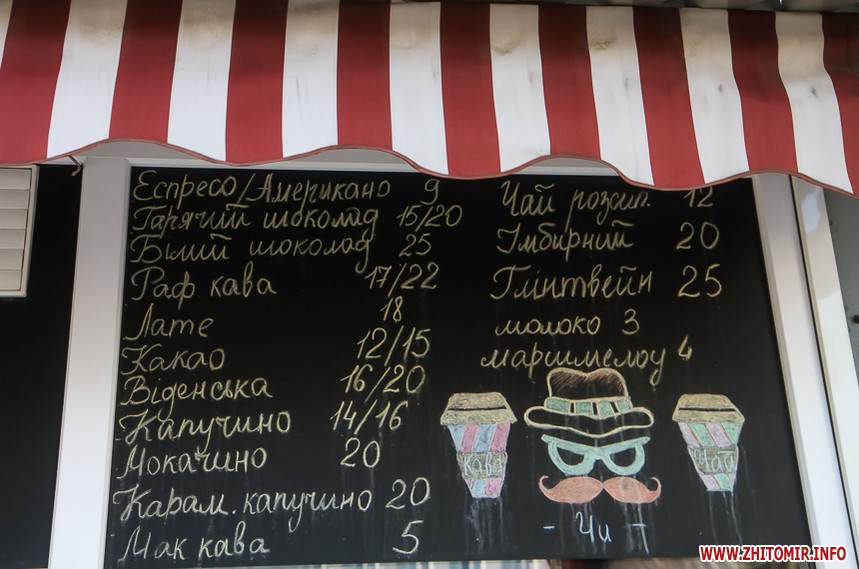 Еспресо/Американо 9
Гарячий шоколад 15/20
Білий шоколад 25
Раф кава 17/22
Лате 18
Какао 12/15
Віденська 16/20
Капучино 14/16
Мокачино 20
Карам. капучино 20
Мак кава 5
Чай розсип. 12
Імбирний 20
Глінтвейн 25
молоко 3
маршмелоу 4
кава
чай
- Чи -
WWW.ZHITOMIR.INFO